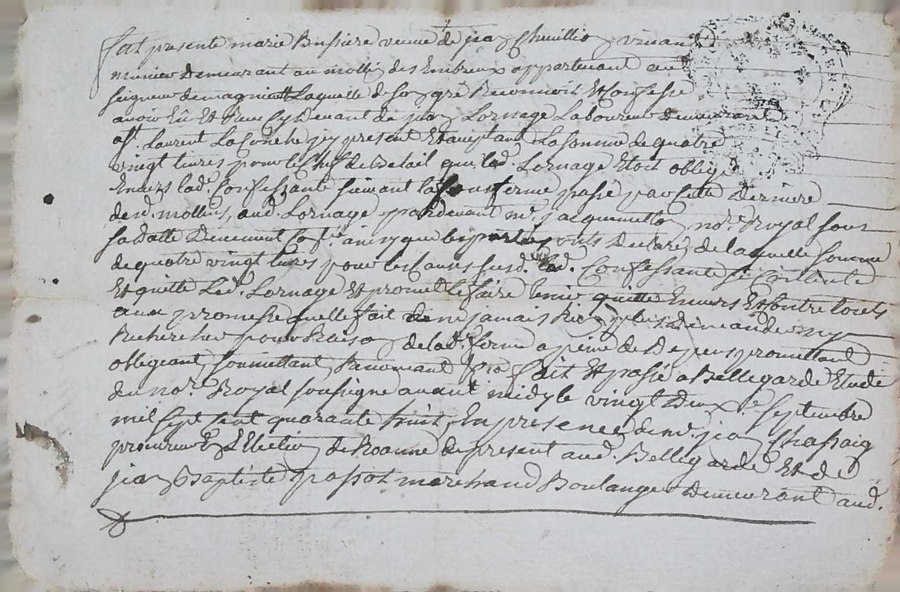 fut presente marie Bussiere veuve de jean Chevillion vivant
munier Demeurant au moulin des Embreux appartenant au
seigneur de magnieu Laquelle de son gré Reconnoit Et Confesse
avoir Eû Et Receu Cy Devant de jean Lornage Laboureur Demeurant
a St. Laurent La Conche jcy present Et acceptant La somme de quatre
vingt livres pour le chef de Betail que led. Lornage Etoit obligé
Envers lad. Confessante suivant la sousferme passé par Cette Derniere
desd. moulins, aud. Lornage pardevant me. jacquemetton no.re Royal sous
sa datte Deuement Con.lé ainsy que les parties l'ont Declaré, de laquelle somme
de quatre vingt livres pour les Causes susd. lad. Confessante se Contente
Et quitte Led. Lornage Et promet Le faire tenir quitte Envers Et Contre touts
aux promesse quelle fait de ne jamais Rien plus Demander ny
Rechercher pour Raison de lad. ferme a peine de Depens promettant
obligeant soumettant Renonceant fait Et passé a Bellegarde Etude
du no.re Royal soussigné avant midy le vingt Deux.e septembre
mil sept Cent quarante huit, En presence de me. jean Chassaig
procureur En L'Election de Roanne de present aud. Bellegarde Et de
jean Baptiste passot marchand Boulanger Demeurant aud.